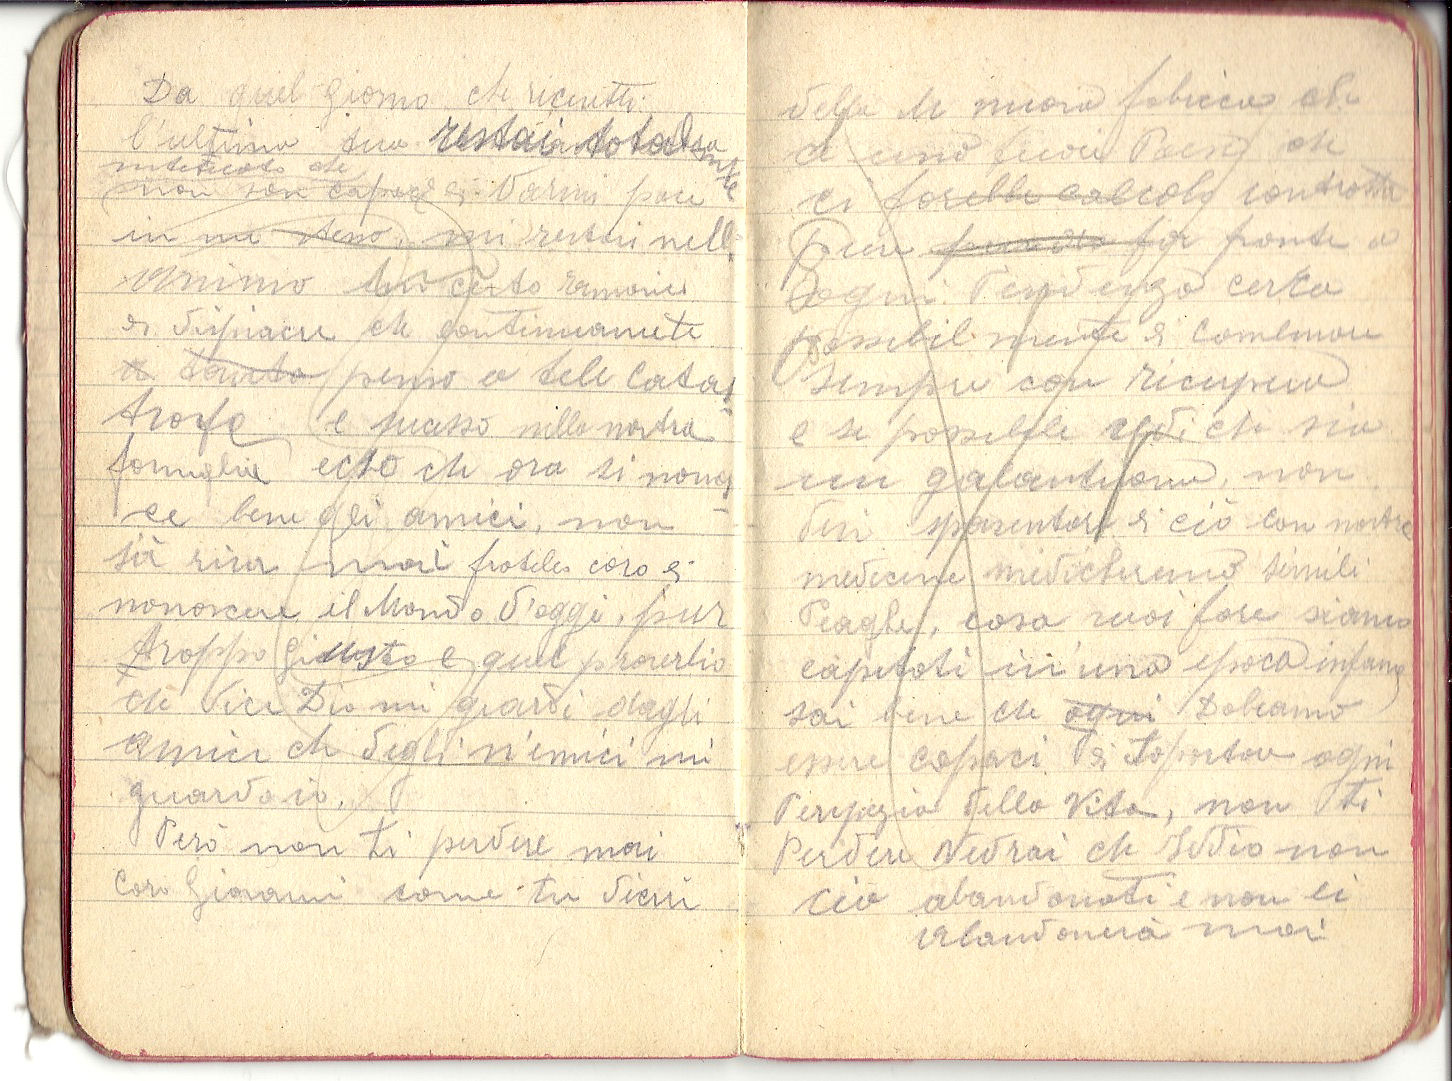 Da quel giorno che ricevetti
l'ultima tua restai totalmente
intericato che
non son capace di Darmi pace
in me steso, mi restai nell
Animo un certo
di dispiacere che continuamete
tanto penso a tele Catas-
trofe e sucesso nella nostra
famiglia ecco che ora si conos-
ce bene gli amici, non
sà mai fratello caro di
conoscere il Mondo d'oggi, pur
troppo Giusto e quel proverbio
che dice Dio mi guardi dagli
amici che degli n'emici mi
guardo io.
Però non ti perdere mai
Caro Giovanni come tu dicevi
della nuova fabicca che
uno fuori Paese che
ci farebbe calcolo
Pure far fronte a
ogni Pendenza certa
possibil mente di
sempre con ricupero
e se possibile che sia
un galantuomo, non
devi spaventare di ciò con nostre
medicine medicheremo simili
Piaghe, cosa vuoi fare siamo
capitati in una epoca infame
sai bene che ogni Dobiamo
essere capaci di Soportare ogni
Peripezia della Vita, non ti
Perdere Vedrai che Iddio non
cià abandonati e non ci
Abandonerà mai